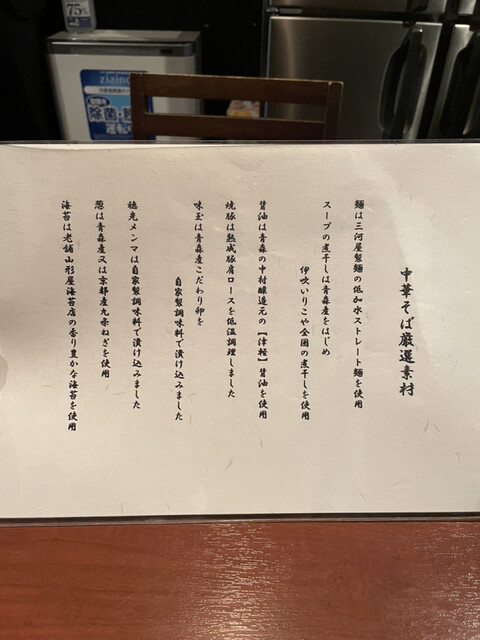 中華そば厳選素材
麺は三河屋製麺の低加水ストレート麺を使用
スープの煮干しは青森産をはじめ
伊吹いりこや全国の煮干しを使用
醤油は青森の中村醸造元の【津軽】醤油を使用
焼豚は熟成豚肩ロースを低温調理しました
味玉は青森産こだわり卵を
自家製調味料で漬け込みました
穂先メンマは自家製調味料で漬け込みました
葱は青森産又は京都産九条ねぎを使用
海苔は老舗山形屋海苔店の香り豊かな海苔を使用
75%
ziaino
除菌
運転